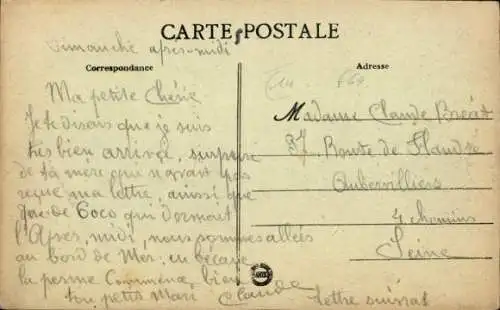 CARTE POSTALE
Dimanche après-midi
Correspondance
Adresse
Ma petite Chérie
Je te disais que je suis
très bien arrivé, surprise
de ta mère qui n'avait pas
reçue ma lettre, ainsi que
de Coco qui dormait
l'Apser, midi, nous sommes allées
au bord de Mer, en bécane
la perme Commence, bien
ton petit Mari Claude
lettre suivrat
Madame Claude Bréat
37 Route de Flandre
Aubervilliers
4 chemins
Seine